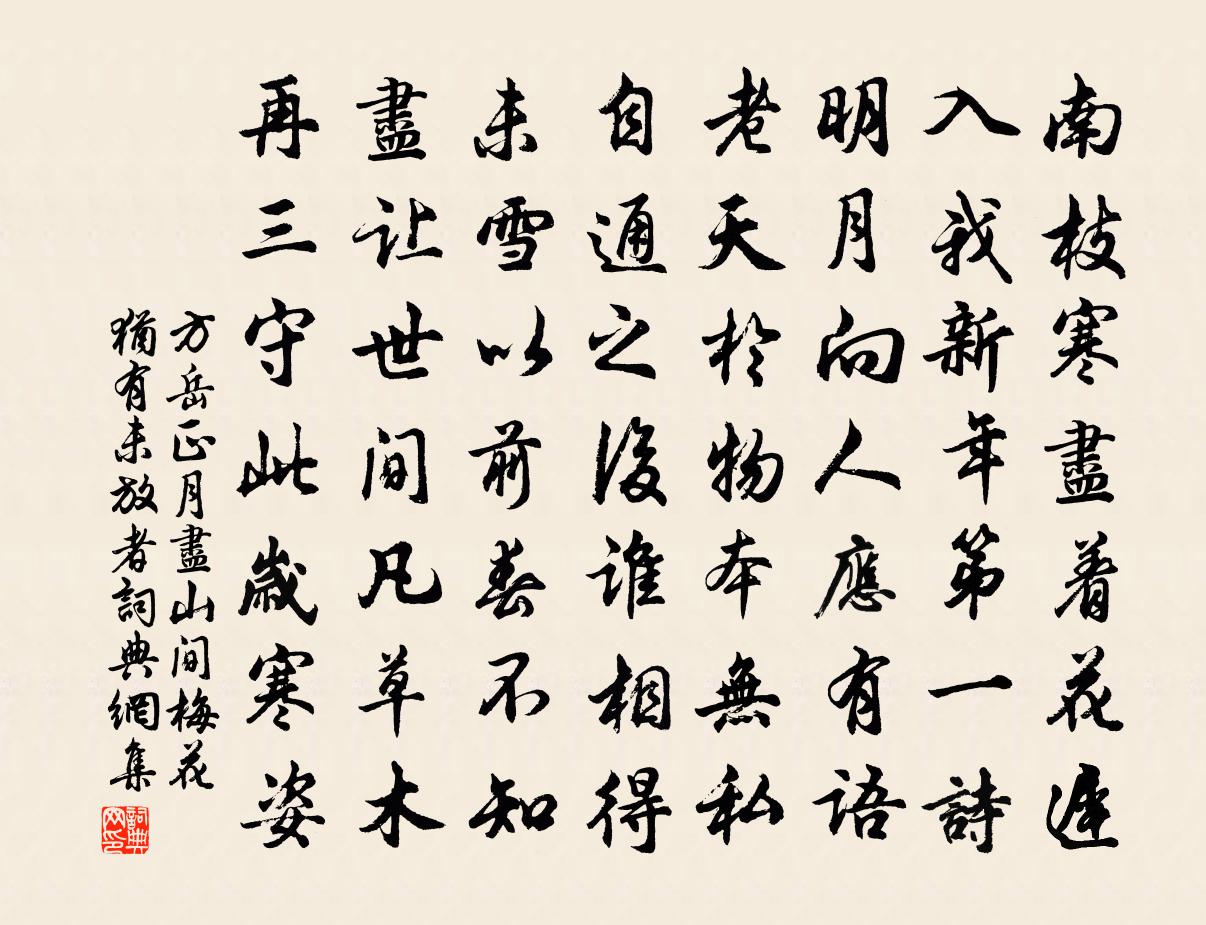 南枝寒盡着花遲
入我新年第一詩
明月向人應有語
老天於物本無私
自通之後誰相得
未雪以前春不知
盡让世间凡草木
再三守此歲寒姿
方岳正月盡山间梅花
猶有未放者詞典網集
詞典网印